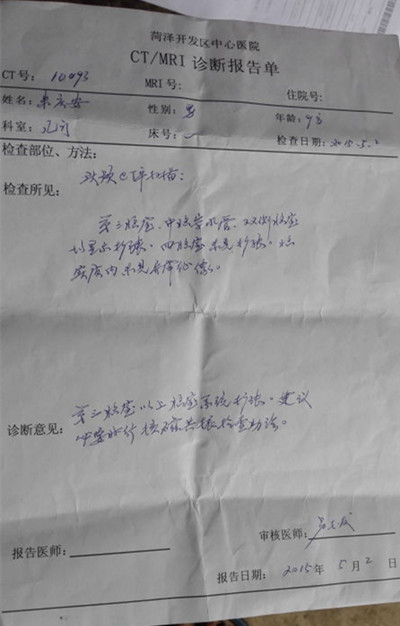 菏泽开发区中心医院
CT/MRI 诊断报告单
CT号: 10093 MRI号: 住院号:
姓名: 性别: 男 年龄: 9岁
科室: 床号: 检查日期: 2015.5.2
检查部位、方法:
头颅CT平扫描:
检查所见:
第三脑室、中脑导水管、双侧脑室
明显扩张。四脑室未见扩张。脑
实质内未见异常征像。
第三脑室以上脑室系统扩张。建议
诊断意见:
必要时行核磁共振检查助诊。
审核医师:
报告医师:
报告日期: 2015 年 5 月 2 日